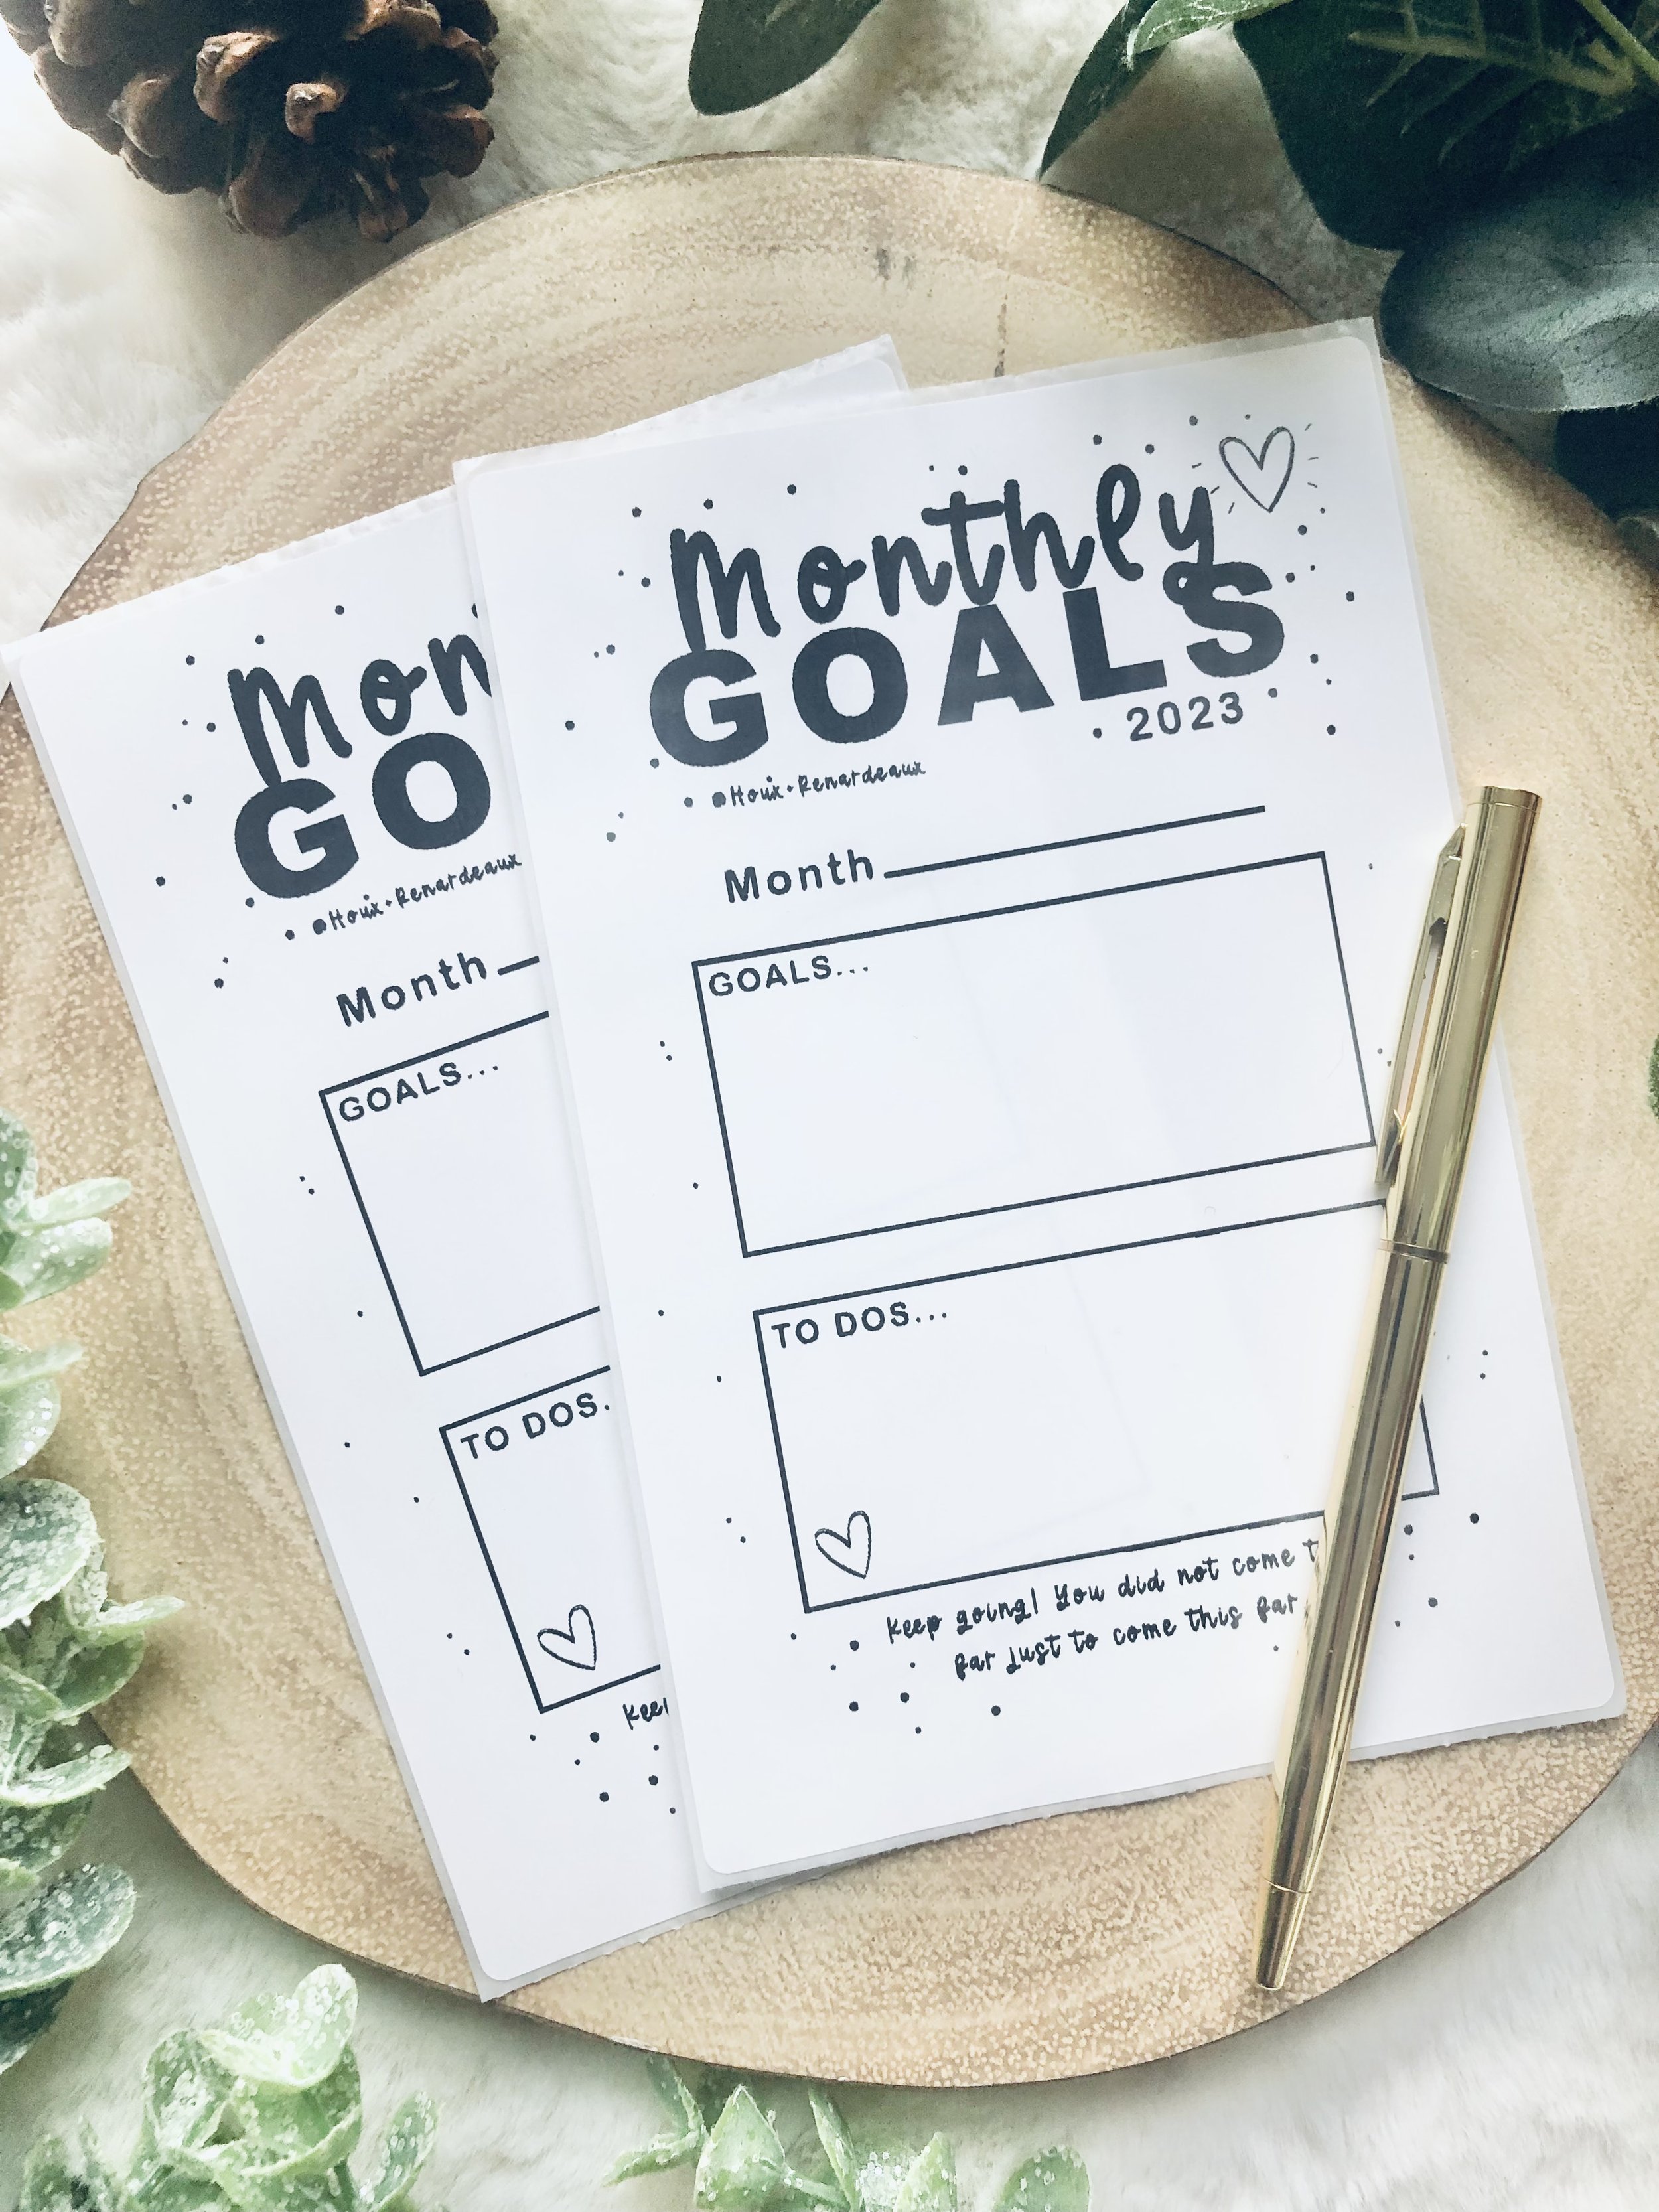 Mon
GO
@Houx.Renardeaux
Month
GOALS...
TO DOS.
Monthly
GOALS
2023
@Houx.Renardeaux
Month
GOALS...
TO DOS...
Keep going! You did not come
far just to come this far